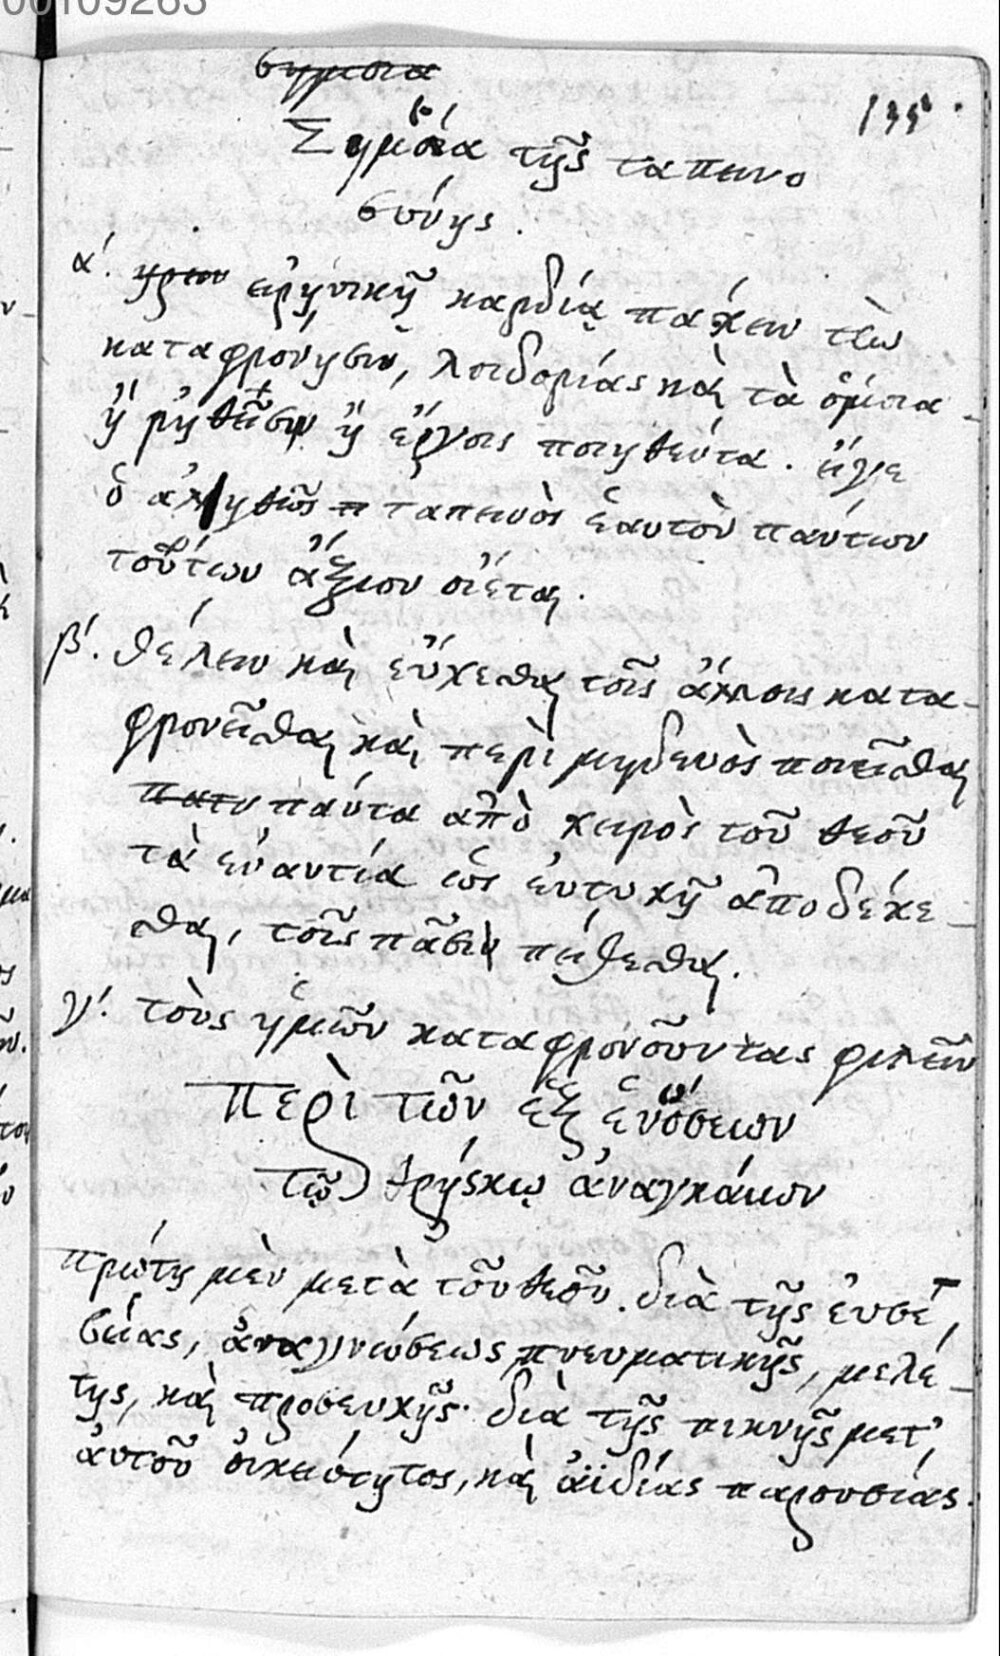 00109263
σημεια
135
Σημεία τῆς ταπεινο
σύνης.
α΄. εἰρηνικῇ καρδίᾳ πάχειν τὴν
καταφρόνησιν, λοιδορίας καὶ τὰ ὅμοια
ἢ ῥηθεῖσιν ἢ ἔργοις ποιηθέντα. εἴγε
ὁ ἀληθῶς ταπεινὸς ἑαυτὸν πάντων
τούτων ἄξιον οἴεται.
β΄. θέλειν καὶ εὔχεσθαι τοῖς ἄλλοις κατα-
φρονεῖσθαι καὶ περὶ μηδενὸς ποιεῖσθαι
πάντα ἀπὸ χειρὸς τοῦ θεοῦ
τὰ ἐναντία ὡς εὐτυχῆ ἀποδέχε-
σθαι, τοῖς πᾶσιν πείθεσθαι.
γ΄. τοὺς ἡμῶν καταφρονοῦντας φιλεῖν
Περὶ τῶν ἓξ ἑνώσεων
τῷ θρήσκῳ ἀναγκάιων
Πρώτη μὲν μετὰ τοῦ θεοῦ. διὰ τῆς ἐυσε-
βείας, ἀναγνώσεως πνευματικῆς, μελέ-
της, καὶ προσευχῆς. διὰ τῆς πικνῆς μετ᾽
ἀυτοῦ οἰκειότητος, καὶ ἀϊδίας παρουσίας.